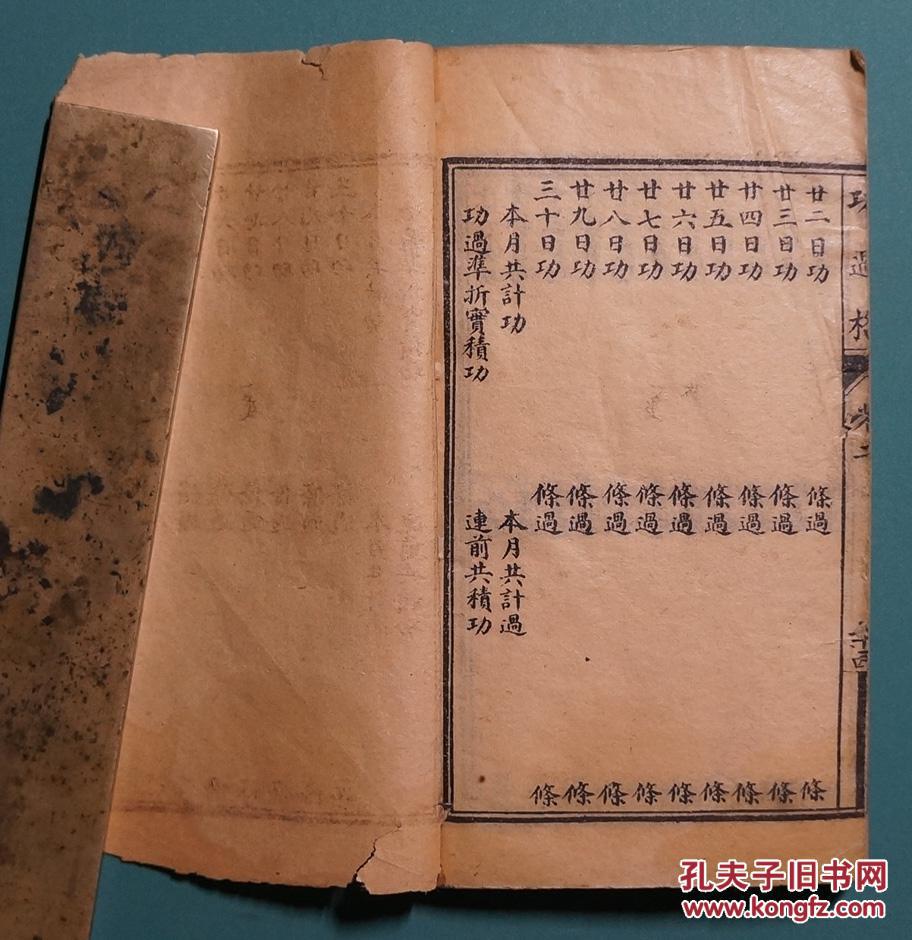 廿二日功 條過 條
廿三日功 條過 條
廿四日功 條過 條
廿五日功 條過 條
廿六日功 條過 條
廿七日功 條過 條
廿八日功 條過 條
廿九日功 條過 條
三十日功 條過 條
本月共計功 本月共計過
功過準折實積功 連前共積功
功過格
孔夫子旧书网
www.kongfz.com